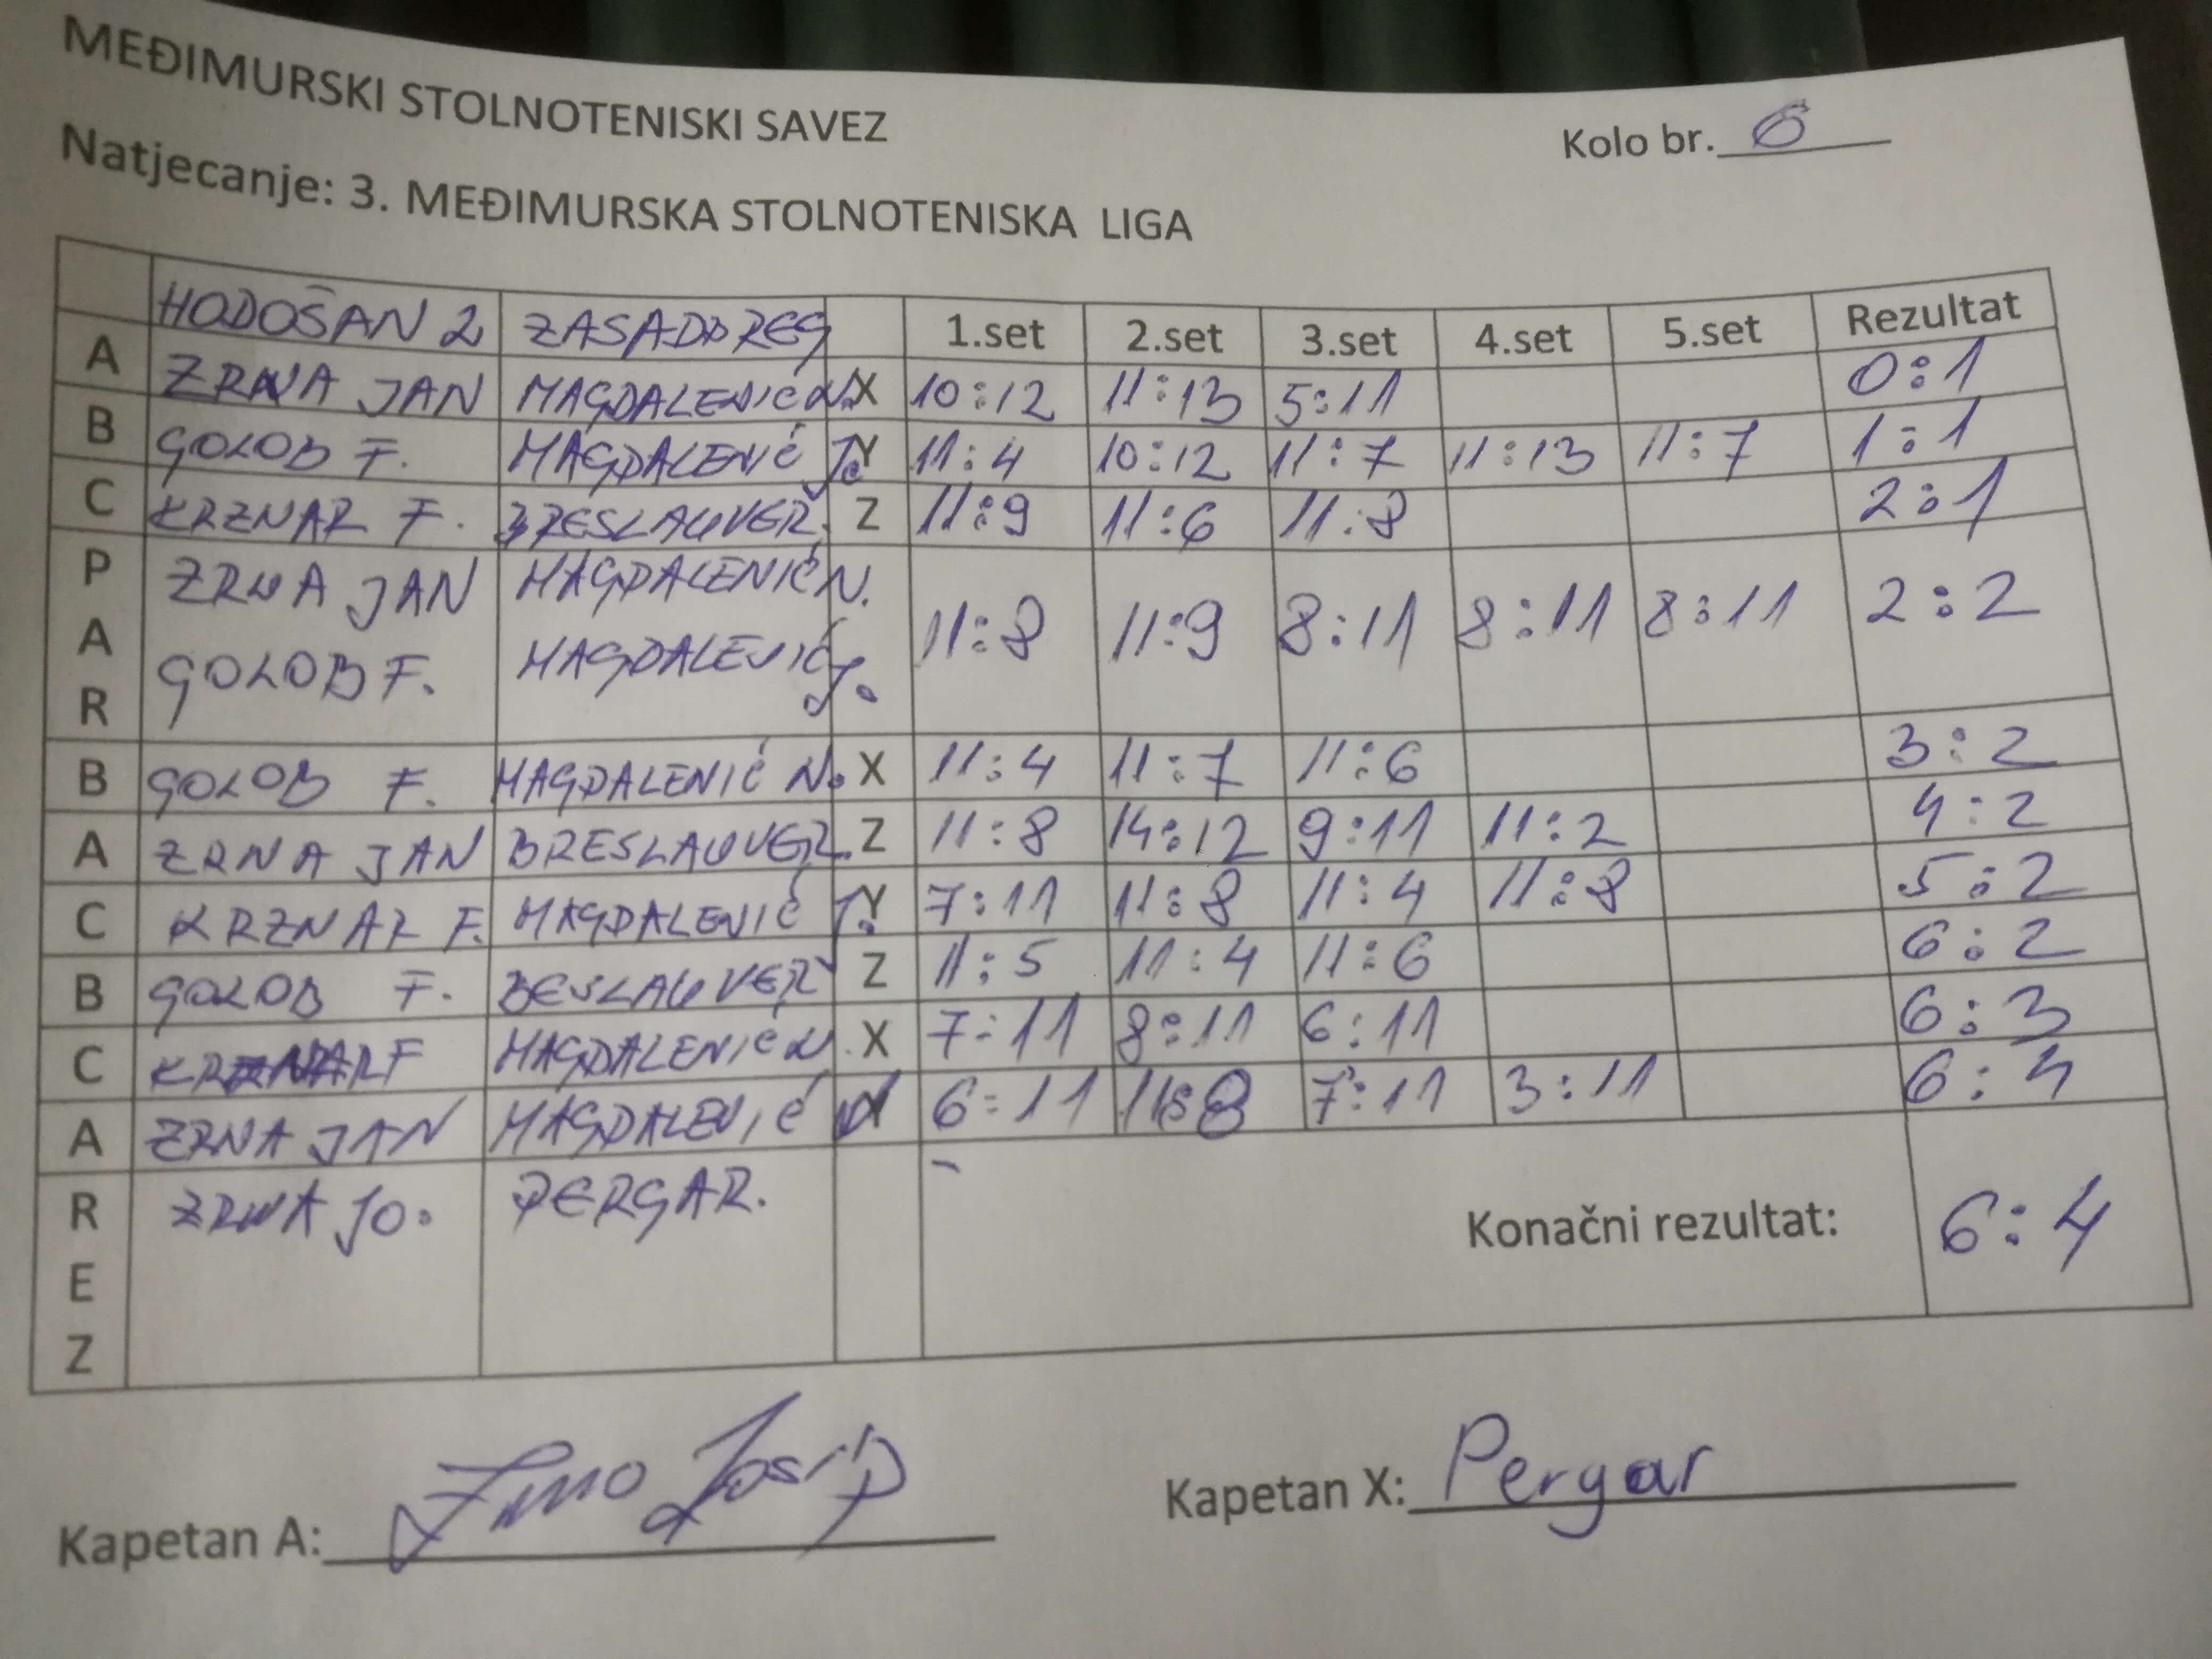 MEĐIMURSKI STOLNOTENISKI SAVEZ
Kolo br. 6
Natjecanje: 3. MEĐIMURSKA STOLNOTENISKA LIGA
HODOŠAN 2 ZASADBREG 1.set 2.set 3.set 4.set 5.set Rezultat
A ZRNA JAN MAGDALENIĆ N. X 10:12 11:13 5:11 0:1
B GOLOB F. MAGDALENIĆ J. Y 11:4 10:12 11:7 11:13 11:7 1:1
C KRZNAR F. BRESLAUVER. Z 11:9 11:6 11:8 2:1
PAR ZRNA JAN MAGDALENIĆ N. 11:8 11:9 8:11 8:11 8:11 2:2
GOLOB F. MAGDALENIĆ J.
B GOLOB F. MAGDALENIĆ N. X 11:4 11:7 11:6 3:2
A ZRNA JAN BRESLAUVER. Z 11:8 14:12 9:11 11:2 4:2
C KRZNAR F. MAGDALENIĆ J. Y 7:11 11:8 11:4 11:8 5:2
B GOLOB F. BESLAUVER Z 11:5 11:4 11:6 6:2
C KRZNAR F MAGDALENIĆ N. X 7:11 8:11 6:11 6:3
A ZRNA JAN MAGDALENIĆ Y 6:11 11:8 7:11 3:11 6:4
REZ ZRNA JO. PERGAR.
Konačni rezultat: 6:4
Kapetan A: Josip
Kapetan X: Pergar